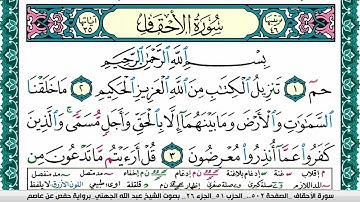 سُورَةُ الأَحْقَافِ
بِسْمِ اللَّهِ الرَّحْمَٰنِ الرَّحِيمِ
حمٓ ١ تَنزِيلُ الْكِتَابِ مِنَ اللَّهِ الْعَزِيزِ الْحَكِيمِ ٢ مَا خَلَقْنَا
السَّمَٰوَٰتِ وَالْأَرْضَ وَمَا بَيْنَهُمَا إِلَّا بِالْحَقِّ وَأَجَلٍ مُّسَمًّى ۚ وَالَّذِينَ
كَفَرُوا عَمَّا أُنذِرُوا مُعْرِضُونَ ٣ قُلْ أَرَءَيْتُم مَّا تَدْعُونَ مِن
سورة الأحقاف . الصفحة ٥٠٢ . الحزب ٥١ . الجزء ٢٦ . بصوت الشيخ عبد الله الجهني برواية حفص عن عاصم